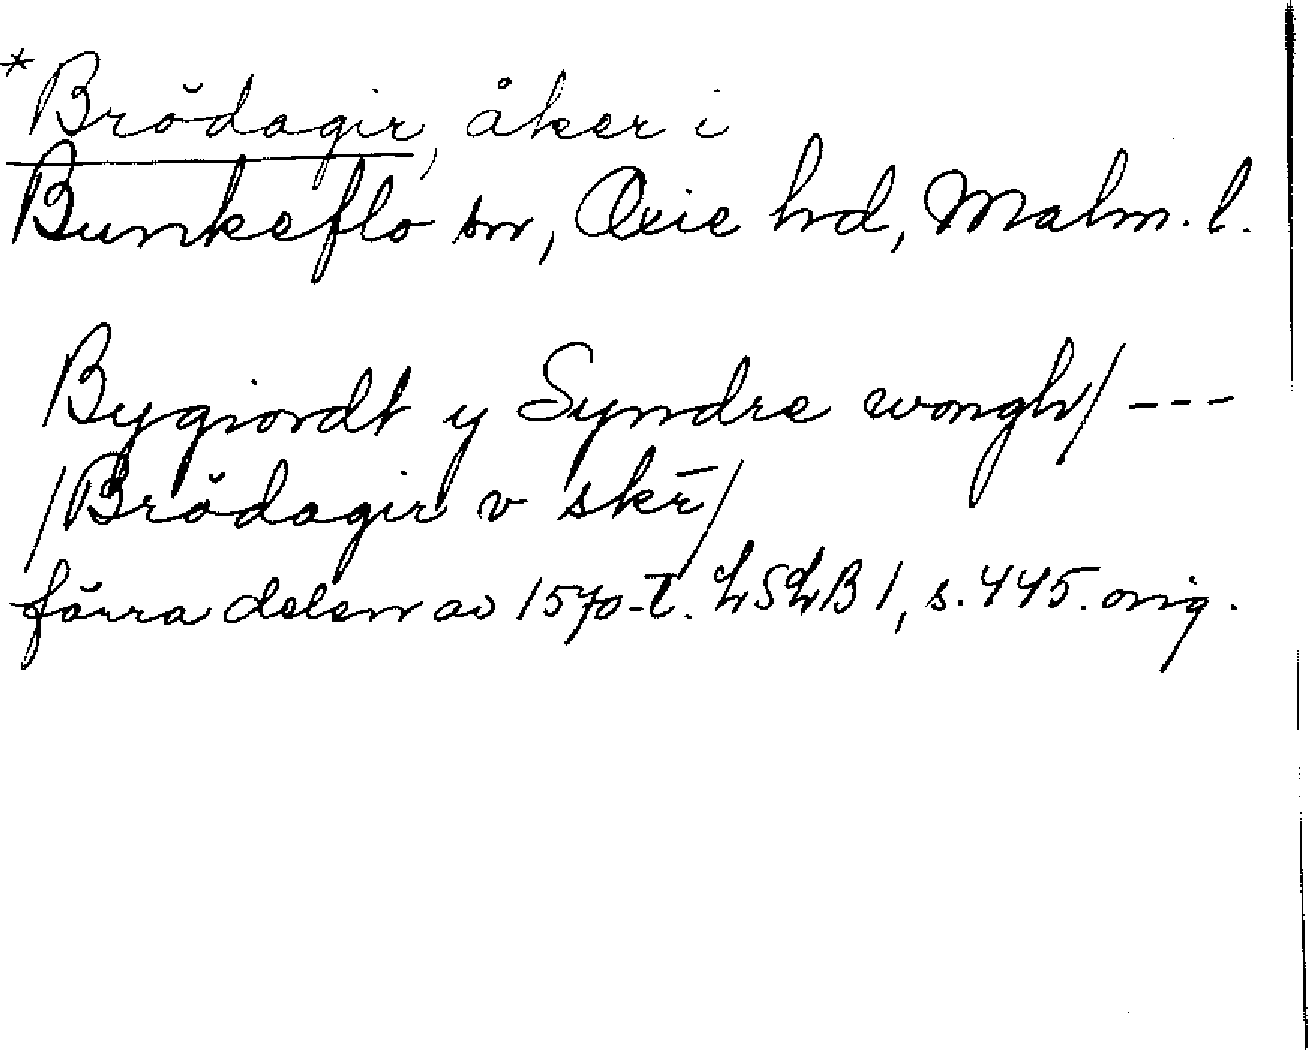 *Brödagir, åker i
Bunkeflo sn, Oxie hd, Malm. l.
Bygiordt y Syndre wongh/ ---
/Brödagir v skr̄/
förra delen av 1570-t. LSLB 1, s. 445. orig.